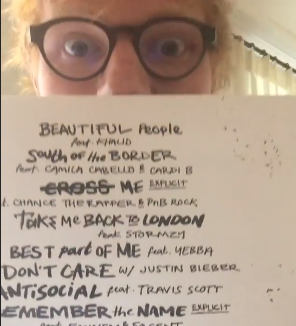 BEAUTIFUL People
feat. KHALID
South of the BORDER
feat. CAMILA CABELLO & CARDI B
CROSS ME EXPLICIT
t. CHANCE THE RAPPER & PnB ROCK
TAKE Me BACK to LONDON
feat. STORMZY
BEST part OF ME feat. YEBBA
DON'T CARE w/ JUSTIN BIEBER
ANTISOCIAL feat. TRAVIS SCOTT
EMEMBER the NAME EXPLICIT
feat. EMINEM & 50 CENT